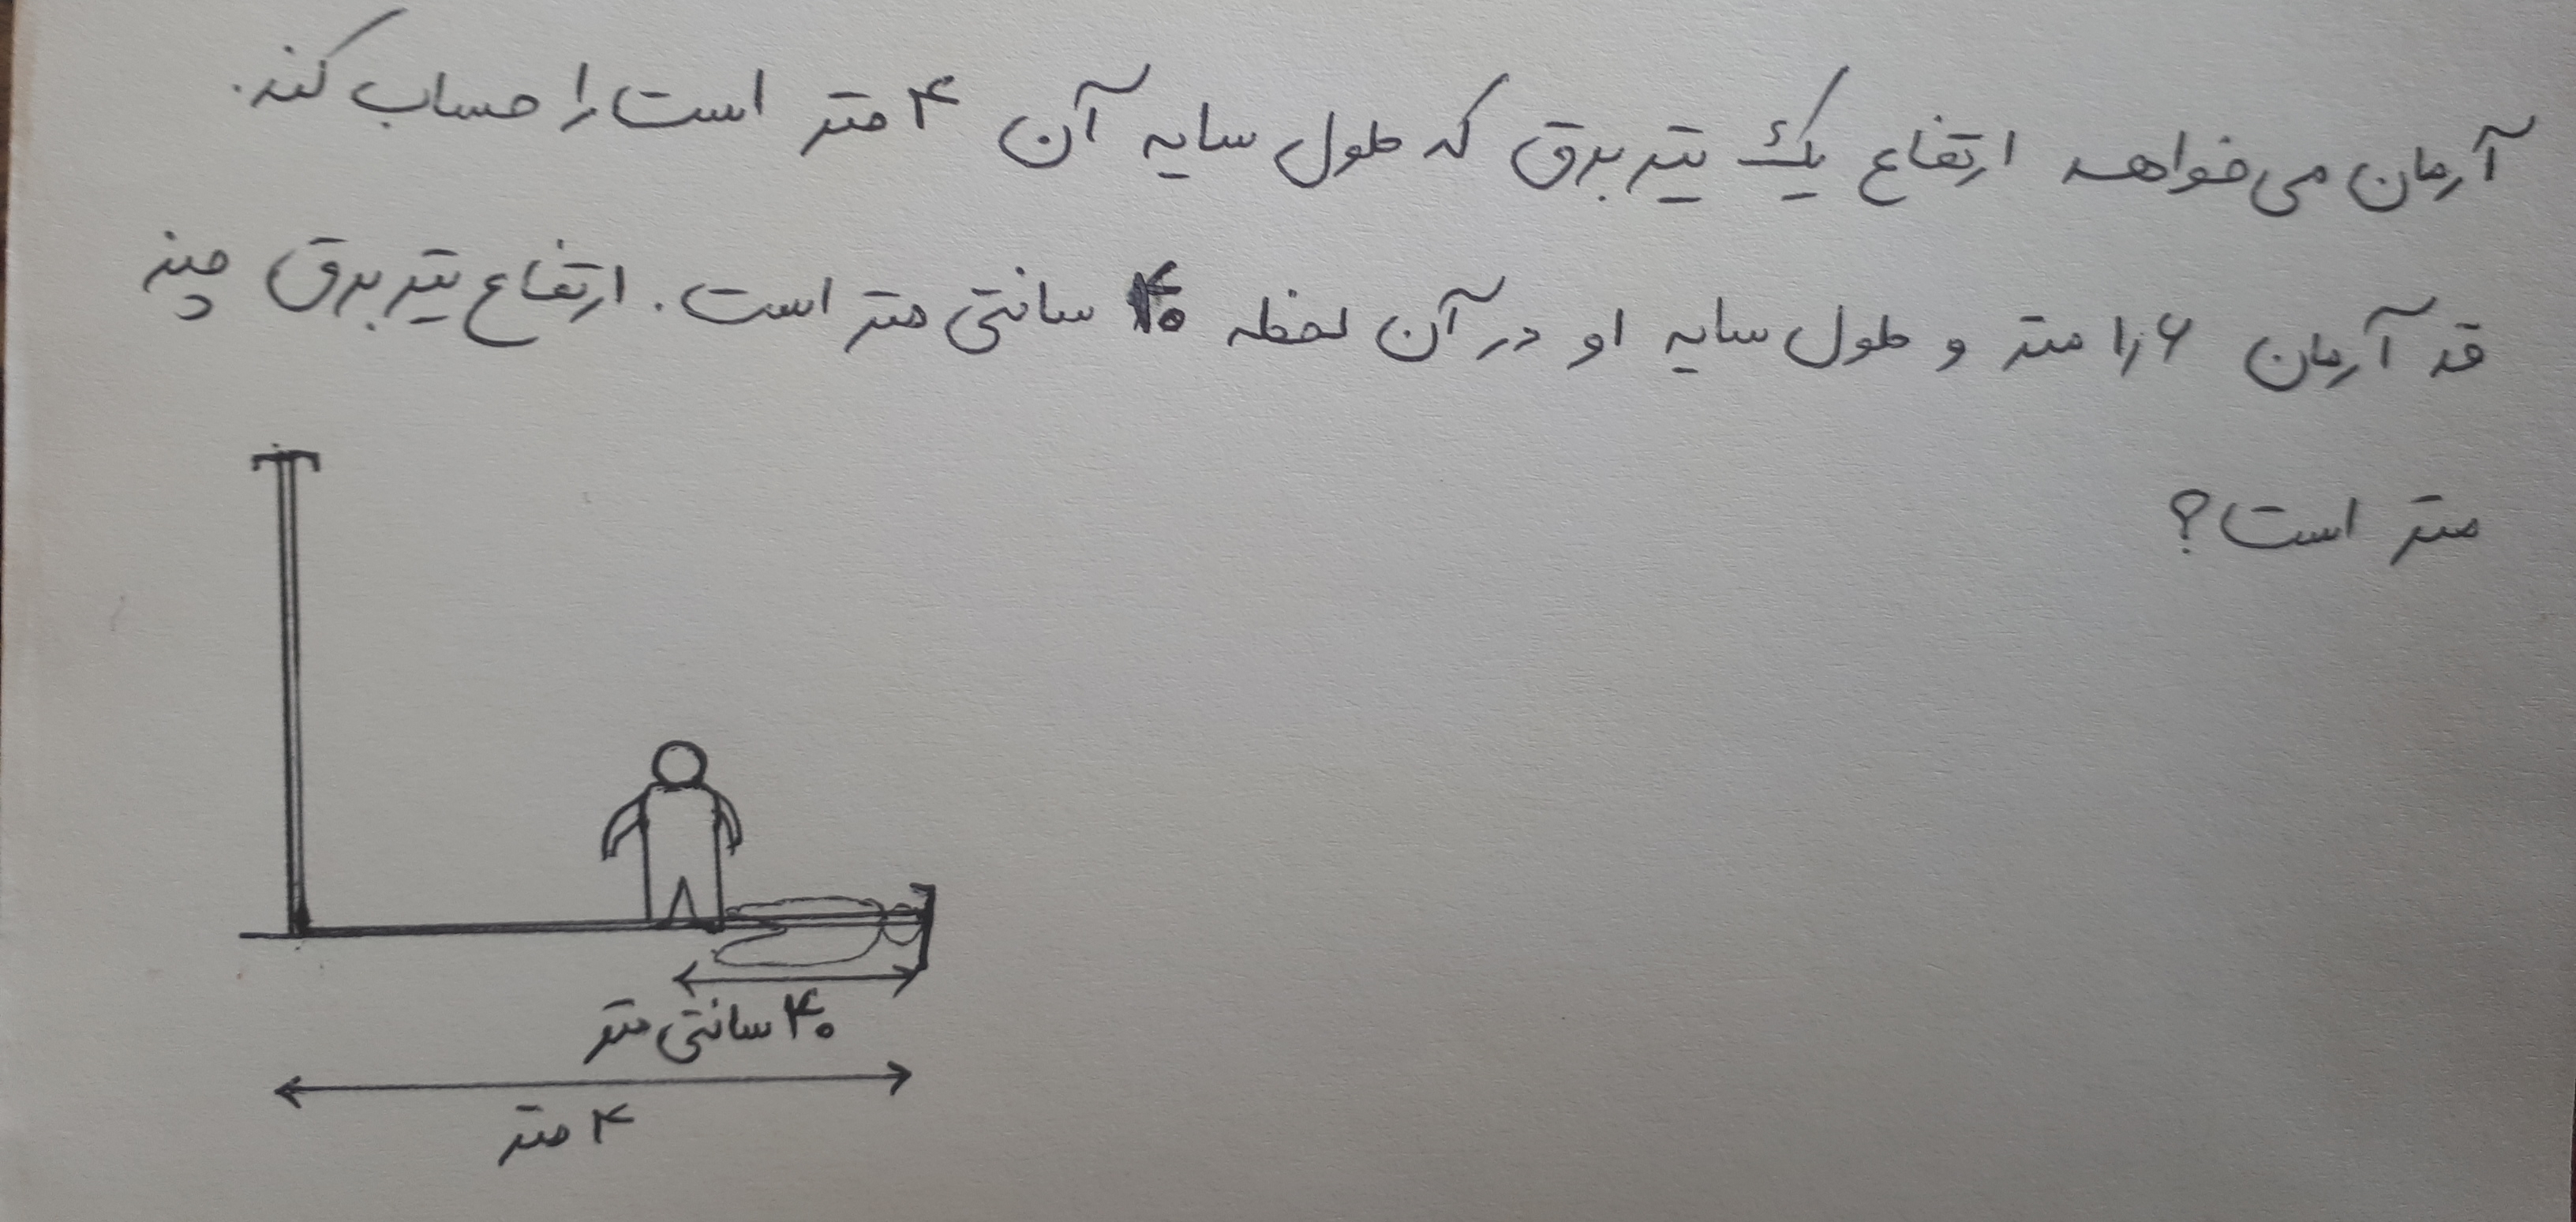 آرمان می‌خواهد ارتفاع یک تیر برق که طول سایه آن ۴ متر است را حساب کند.
قد آرمان ۱٫۶ متر و طول سایه او در آن لحظه ۴۰ سانتی متر است. ارتفاع تیر برق چند
متر است؟
۴۰ سانتی متر
۴ متر